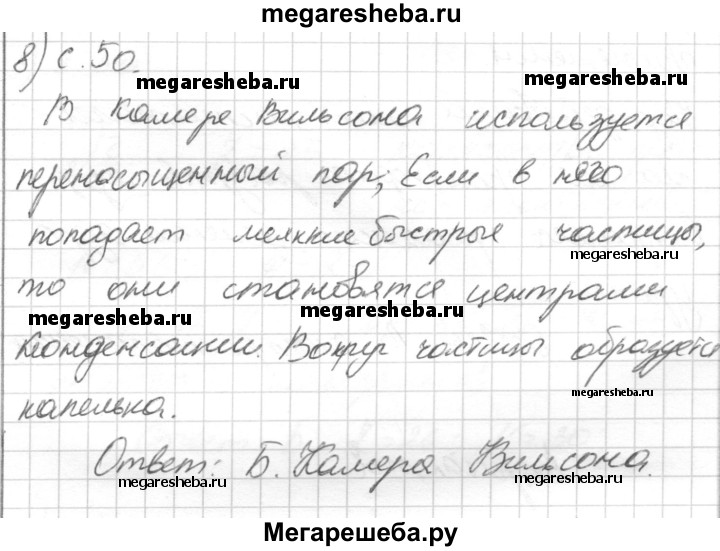 megaresheba.ru
8) с. 50.
megaresheba.ru megaresheba.ru
В Камере Вильсона используется
перенасыщенный пар; Если в него
попадает мелкие быстрые частицы,
megaresheba.ru
то они становятся центрами
megaresheba.ru megaresheba.ru
конденсации. Вокруг частицы образуется
megaresheba.ru
капелька.
Ответ: Б. Камера Вильсона.
megaresheba.ru megaresheba.ru
Мегарешеба.ру